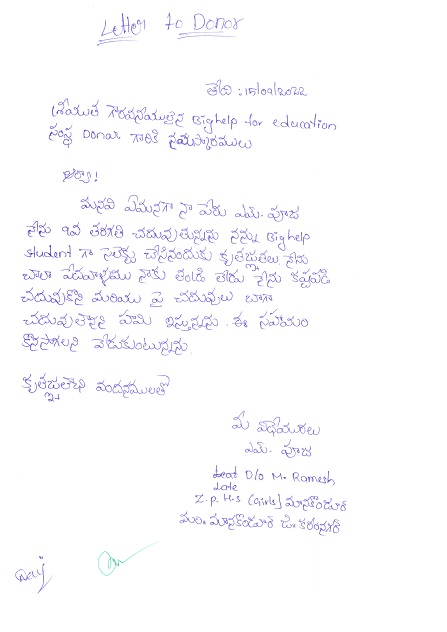 Letter to Donor
తేది : 15/09/2022
శ్రీయుత గౌరవనీయులైన Bighelp for education
సంస్థ Donar గారికి నమస్కారములు
ఆర్యా!
మనవి ఏమనగా నా పేరు ఎమ్. పూజ
నేను 9వ తరగతి చదువుతున్నాను నన్ను Bighelp
student గా సెలెక్టు చేసినందుకు కృతజ్ఞతలు నేను
చాలా పేదవాళ్లము నాకు తండ్రి లేరు నేను కష్టపడి
చదువుకొని మరియు పై చదువులు బాగా
చదువుతానని హామి ఇస్తున్నాను. ఈ సహాయం
కొనసాగాలని వేడుకుంటున్నాను.
కృతజ్ఞతాభి వందనములతో
మీ విధేయురాలు
ఎమ్. పూజ
D/o M. Ramesh
late
Z.p.H.s (Girls) మానకొండూర్
మం. మానకొండూర్ జి. కరీంనగర్